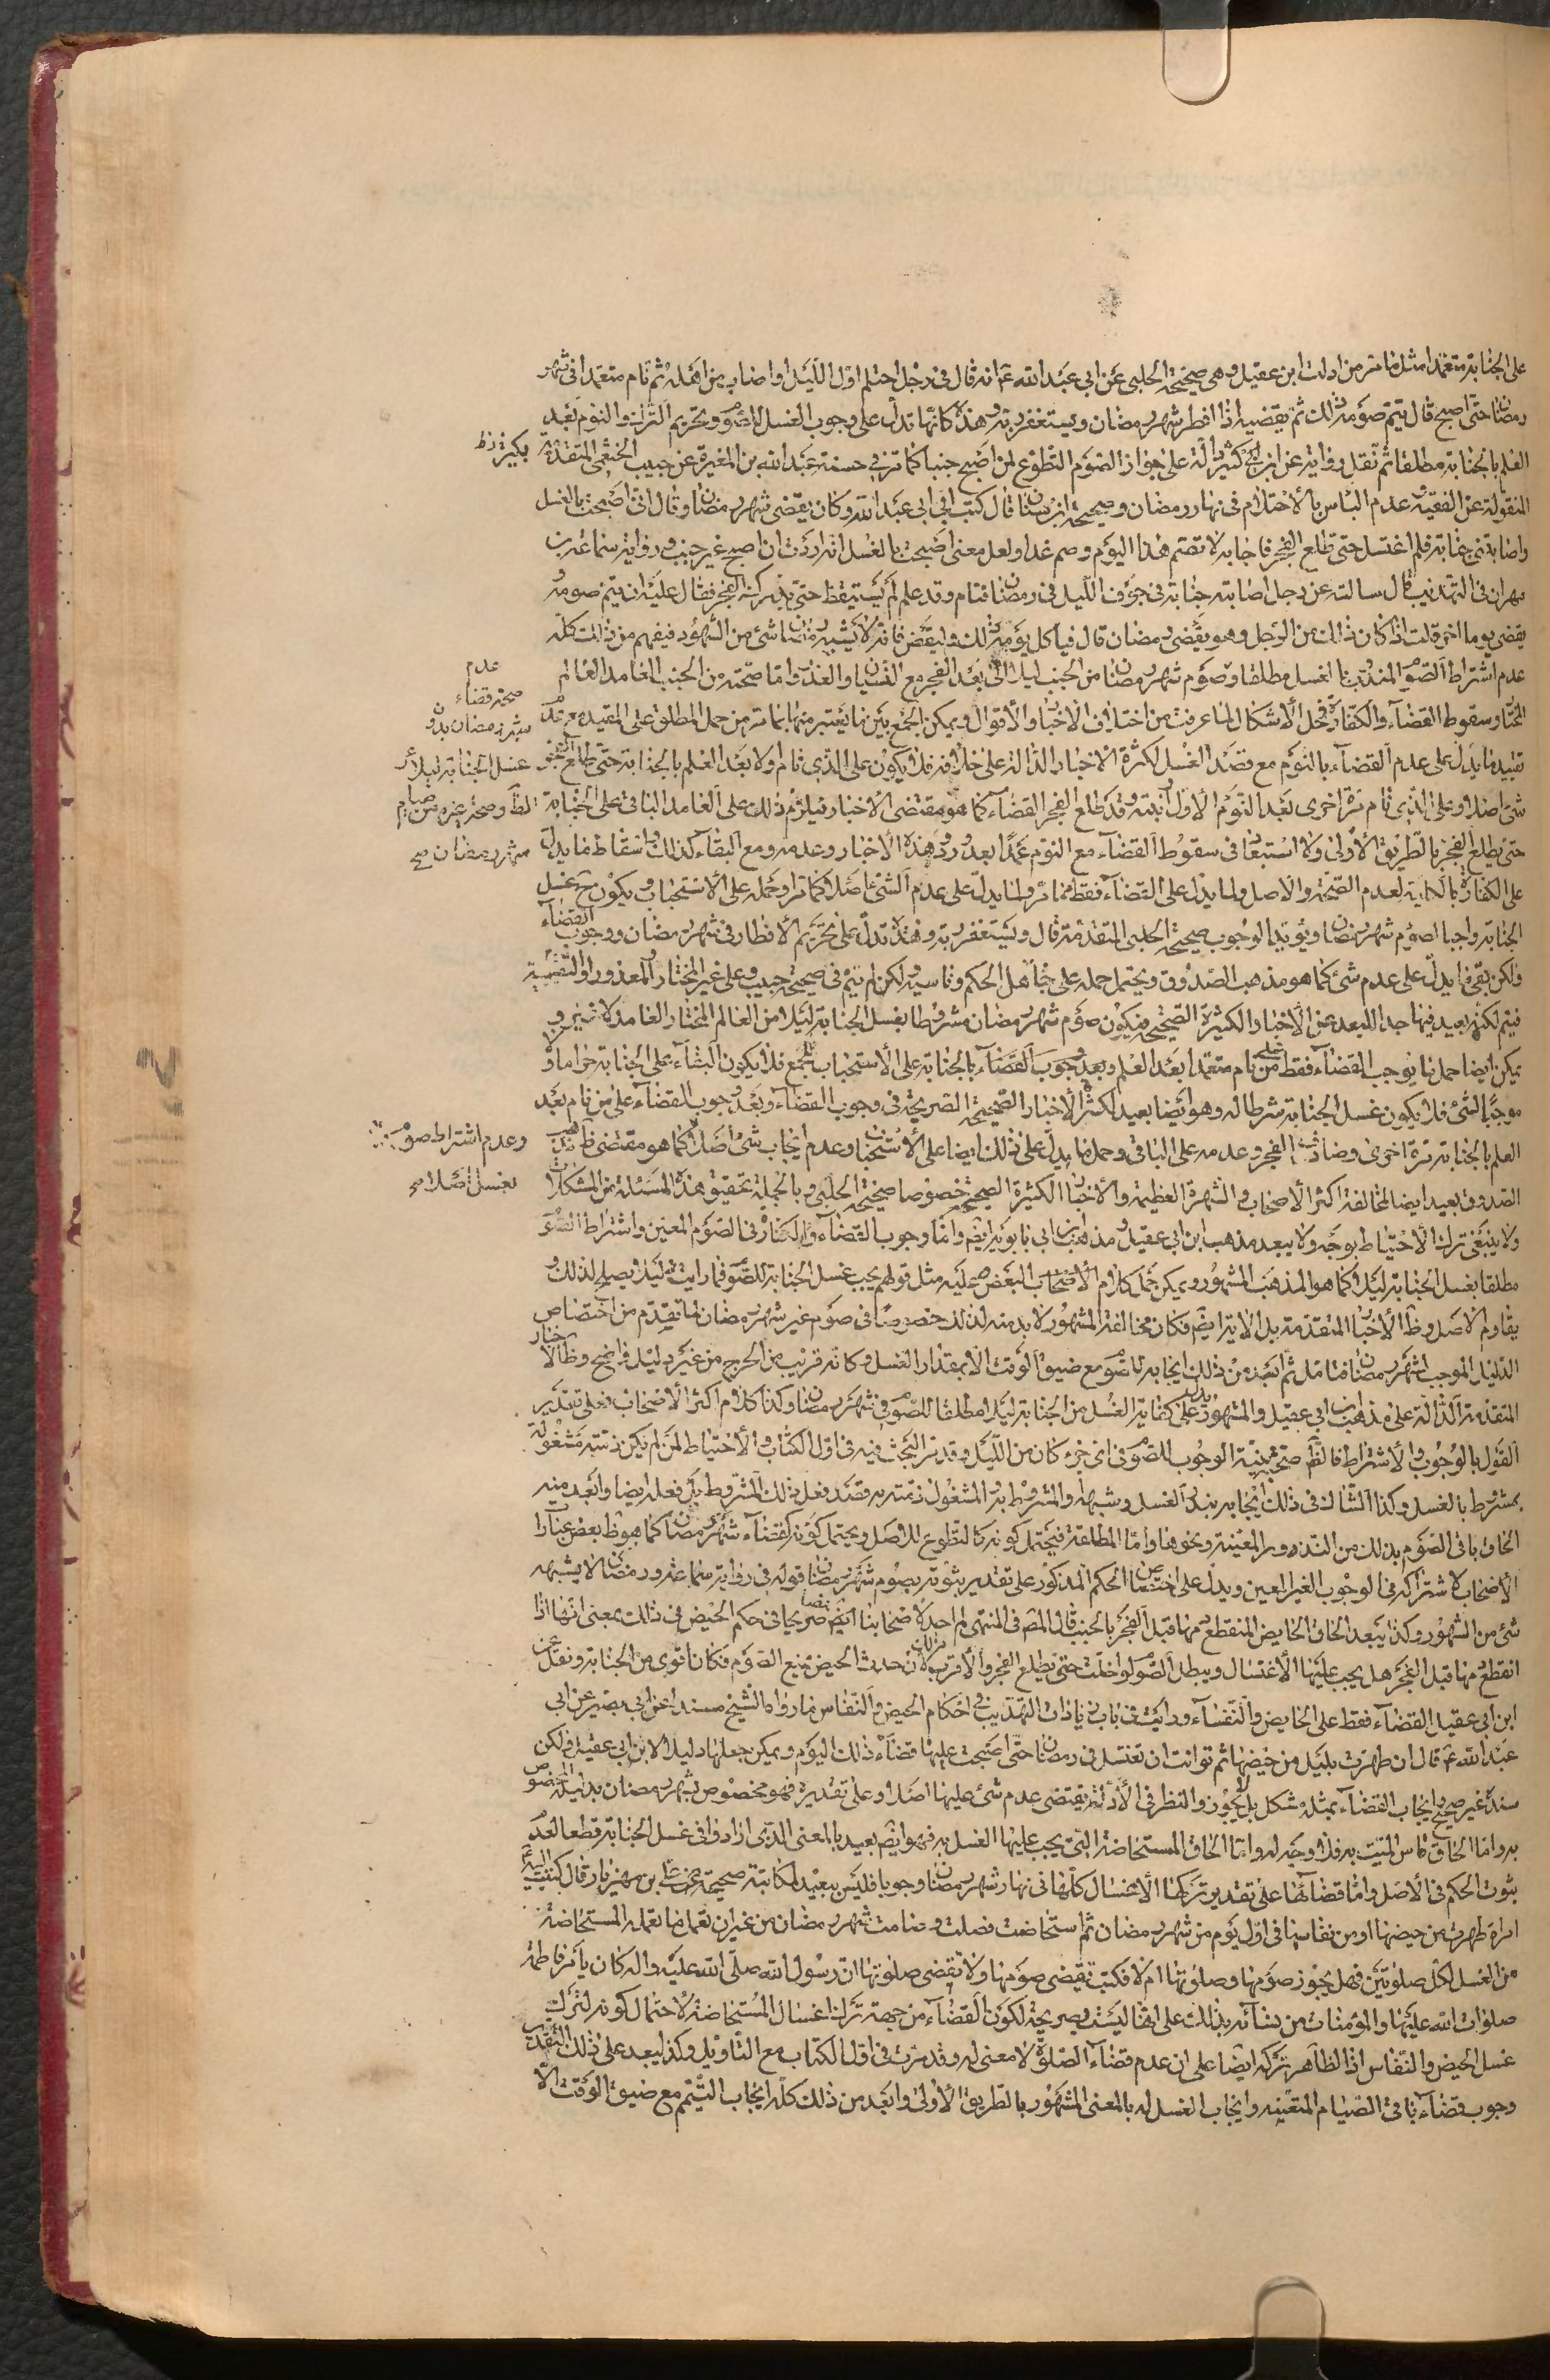 على الجنابة متعمدا مثل ما مر من ادلة ابن عقيل وهي صحيحة الحلبي عن ابي عبد الله ع انه قال في رجل احتلم اول الليل او اصاب من اهله ثم نام متعمدا في شهر
رمضان حتى اصبح قال يتم صومه ذلك ثم يقضيه اذا افطر شهر رمضان ويستغفر ربه وهذه كانها تدل على وجوب الغسل للصوم وتحريم الترك والنوم بعد
العلم بالجنابة مطلقا ثم نقل رواية عن ابن بكير دالة على جواز الصوم التطوع لمن اصبح جنبا كما مر في حسنة عبد الله بن المغيرة عن حبيب الخثعمي المتقدمة
بكير ظ
المنقولة عن الفقيه عدم الباس بالاحتلام في نهار رمضان وصحيحة ابن سنان قال كتب ابي الى ابي عبد الله وكان يقضي شهر رمضان وقال اني اصبحت بالغسل
واصابتني جنابة فلم اغتسل حتى طلع الفجر فاجابه لا تصم هذا اليوم وصم غدا ولعل معنى اصبحت بالغسل انه اردت ان اصبح غير جنب وفي رواية سماعة بن
مهران في التهذيب قال سالته عن رجل اصابته جنابة في جوف الليل في رمضان فنام وقد علم لم يستيقظ حتى يدركه الفجر فقال عليه ان يتم صومه و
يقضي يوما اخر قلت اذا كان ذلك من الرجل وهو يقضي رمضان قال فياكل يومه ذلك وليقض فانه لا يشبه رمضان شئ من الشهور فيفهم من ذلك كله
عدم اشتراط الصوم المندوب بالغسل مطلقا وصوم شهر رمضان من الجنب ليلا الى بعد الفجر مع النسيان والعذر واما صحته من الجنب العامد العالم
عدم
صحة قضاء
شهر رمضان بدون
غسل الجنابة ليلا كر
الظ وصحة غيره من صيام
شهر رمضان صح
المختار وسقوط القضاء والكفارة فمحل الاشكال لما عرفت من اختلاف الاخبار والاقوال ويمكن الجمع بين ما يعتبر منها بما مر من حمل المطلق على المقيد
تقييد ما يدل على عدم القضاء بالنوم مع قصد الغسل لكثرة الاخبار الدالة على خلافه فلا يكون على الذي نام اولا بعد العلم بالجنابة حتى طلع الفجر
شئ اصلا وعلى الذي نام مرة اخرى بعد النوم الاول وقد طلع الفجر القضاء كما هو مقتضى الاخبار فيلزم ذلك على العامد الباقي على الجنابة
حتى يطلع الفجر بالطريق الاولى ولا استبعاد في سقوط القضاء مع النوم عمدا بعد ورود هذه الاخبار وعدمه مع البقاء كذلك واسقاط ما يدل
على الكفارة بالكلية لعدم الصحة والاصل ولما يدل على القضاء فقط مما مر ولما يدل على عدم الشئ اصلا كما مر او حمله على الاستحباب ويكون ح غسل
الجنابة واجبا لصوم شهر رمضان ويؤيد الوجوب صحيحة الحلبي المتقدمة قال ويستغفر ربه وهذه تدل على تحريم الافطار في شهر رمضان ووجوب القضاء
ولكن بقي ما يدل على عدم شئ كما هو مذهب الصدوق ويحتمل حمله على جاهل الحكم وناسيه لكن لم يتم في صحيحة حبيب وعلى غير المختار والمعذور او التقية
فيتم لكنه بعيد فيها جدا للبعد عن الاخبار الكثيرة الصحيحة فيكون صوم شهر رمضان مشروطا بغسل الجنابة ليلا من العالم المختار العامد لا غير و
يمكن ايضا حمل ما يوجب القضاء فقط على من نام متعمدا بعد العلم وبعد وجوب القضاء بالجنابة على الاستحباب للجمع فلا يكون البقاء على الجنابة حراما ولا
موجبا لشئ فلا يكون غسل الجنابة شرطا له وهو ايضا بعيد لكثرة الاخبار الصحيحة الصريحة في وجوب القضاء وبعد وجوب القضاء على من نام بعد
العلم بالجنابة مرة اخرى وصادف الفجر وعدمه على الباقي وحمل ما يدل على ذلك ايضا على الاستحباب وعدم ايجاب شئ اصلا كما هو مقتضى ظاهر مذهب
وعدم اشتراط صومه
بغسل اصلا صح
الصدوق بعيد ايضا لمخالفة اكثر الاصحاب والشهرة العظيمة والاخبار الكثيرة الصحيحة خصوصا صحيحة الحلبي وبالجملة تحقيق هذه المسئلة من المشكلات
ولا ينبغي ترك الاحتياط بوجه ولا يبعد مذهب ابن ابي عقيل ومذهب ابن ابي بابويه ايضم واما وجوب القضاء والكفارة في الصوم المعين واشتراط الصوم
مطلقا بغسل الجنابة ليلا كما هو المذهب المشهور ويمكن حمل كلام الاصحاب البعض عليه مثل قولهم يجب غسل الجنابة للصوم فما رايت له دليلا يصلح لذلك و
يقاوم الاصل وظ الاخبار المتقدمة بل الاية ايضم فكان مخالفة المشهور لا بد منه لذلك خصوصا في صوم غير شهر رمضان لما تقدم من اختصاص
الدليل الموجب بشهر رمضان فتامل ثم ابعد من ذلك ايجابه للصوم مع ضيق الوقت الا بمقدار الغسل وكانه قريب من الحرج من غير دليل واضح وظ الاخبار
المتقدمة الدالة على مذهب ابن ابي عقيل والمشهور يدل على كفاية الغسل من الجنابة ليلا مطلقا للصوم في شهر رمضان وكذا كلام اكثر الاصحاب فعلى تقدير
القول بالوجوب والاشتراط فالظ صحته بنية الوجوب للصوم في اي جزء كان من الليل وقد مر البحث فيه في اول الكتاب والاحتياط لمن لم يكن ذمته مشغولة
بمشروط بالغسل وكذا الشاك في ذلك ايجابه بنذر الغسل وشبهه والمشروط به والمشغول ذمته به قصد فعل ذلك المشروط بل فعله ايضا وابعد منه
الحاق باقي الصوم بذلك من النذور المعينة ونحوها واما المطلقة فيحتمل كونه كالتطوع للاصل ويحتمل كونه كقضاء شهر رمضان كما هو ظ بعض عبارات
الاصحاب لاشتراكه في الوجوب الغير المعين ويدل على اختصاص الحكم المذكور على تقدير ثبوته بصوم شهر رمضان قوله في رواية سماعة ورمضان لا يشبهه
شئ من الشهور وكذا يبعد الحاق الحايض المنقطع دمها قبل الفجر بالجنب قال المصم في المنتهى لم اجد لاصحابنا ايضم نصا صريحا في حكم الحيض في ذلك بمعنى انها اذا
انقطع دمها قبل الفجر هل يجب عليها الاغتسال ويبطل الصوم لو اخلت حتى يطلع الفجر والاقرب ذلك لان حدث الحيض يمنع الصوم فكان اقوى من الجنابة ونقل عن
ابن ابي عقيل القضاء فقط على الحايض والنفساء ورايت في باب زيادات التهذيب في احكام الحيض والنفاس ما رواه الشيخ مسندا عن ابي بصير عن ابي
عبد الله ع قال ان طهرت بليل من حيضها ثم توانت ان تغتسل في رمضان حتى اصبحت عليها قضاء ذلك اليوم ويمكن جعلها دليلا لابن ابي عقيل ولكن
سنده غير صحيح وايجاب القضاء بمثله مشكل بل لا يجوز والنظر في الادلة يقتضي عدم شئ عليها اصلا وعلى تقديره فهو مخصوص بشهر رمضان بدليله المخصوص
به واما الحاق ماس الميت به فلا وجه له واما الحاق المستحاضة التي يجب عليها الغسل به فهو ايضم بعيد بالمعنى الذي ارادوا في غسل الجنابة قطعا لعدم
ثبوت الحكم في الاصل واما قضاؤها على تقدير تركها الاغسال كلها في نهار شهر رمضان وجوبا فليس ببعيد لمكاتبة صحيحة عن علي بن مهزيار قال كتبت اليه
امراة طهرت من حيضها او من نفاسها في اول يوم من شهر رمضان ثم استحاضت فصلت وصامت شهر رمضان من غير ان تعمل ما تعمله المستحاضة
من الغسل لكل صلوتين فهل يجوز صومها وصلوتها ام لا فكتب تقضي صومها ولا تقضي صلوتها ان رسول الله صلى الله عليه واله كان يامر فاطمة
صلوات الله عليها والمؤمنات من نسائه بذلك على انها ليست بصريحة لكون القضاء من جهة ترك اغسال المستحاضة لاحتمال كونه لترك
غسل الحيض والنفاس اذ الظاهر تركه ايضا على ان عدم قضاء الصلوة لا معنى له وقد مرت في اول الكتاب مع التاويل وكذا يبعد على ذلك التقدير
وجوب قضاء باقي الصيام المتعينه وايجاب الغسل له بالمعنى المشهور بالطريق الاولى وابعد من ذلك كله ايجاب التيمم مع ضيق الوقت الا